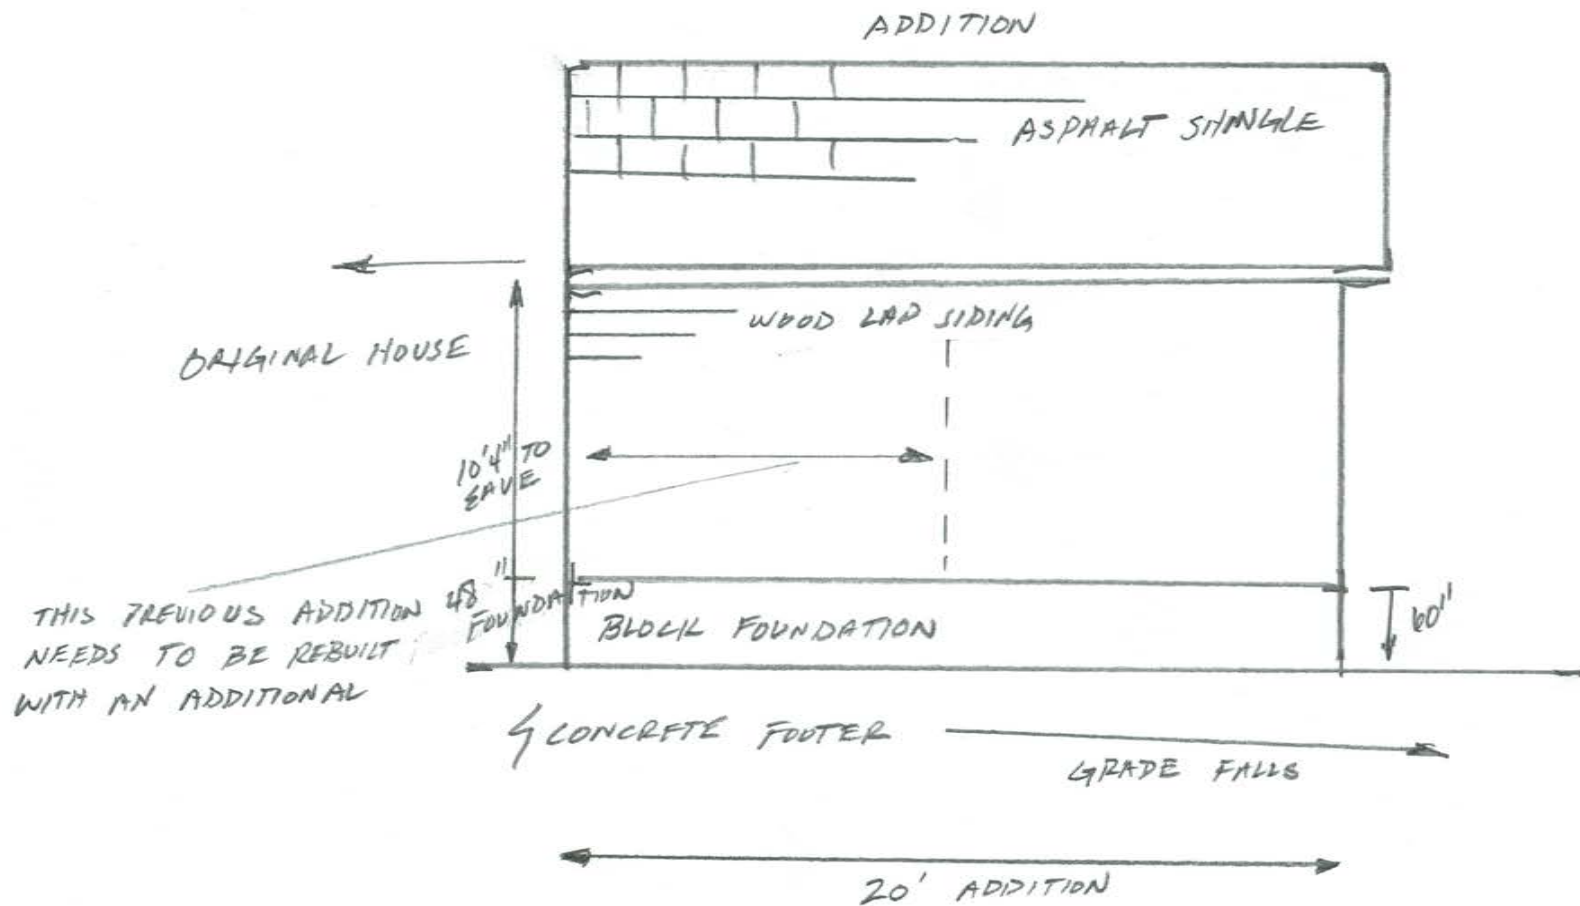 ADDITION
ASPHALT SHINGLE
WOOD LAP SIDING
ORIGINAL HOUSE
10'4" TO
EAVE
48"
FOUNDATION
THIS PREVIOUS ADDITION
NEEDS TO BE REBUILT
WITH AN ADDITIONAL
BLOCK FOUNDATION
60"
CONCRETE FOOTER
GRADE FALLS
20' ADDITION